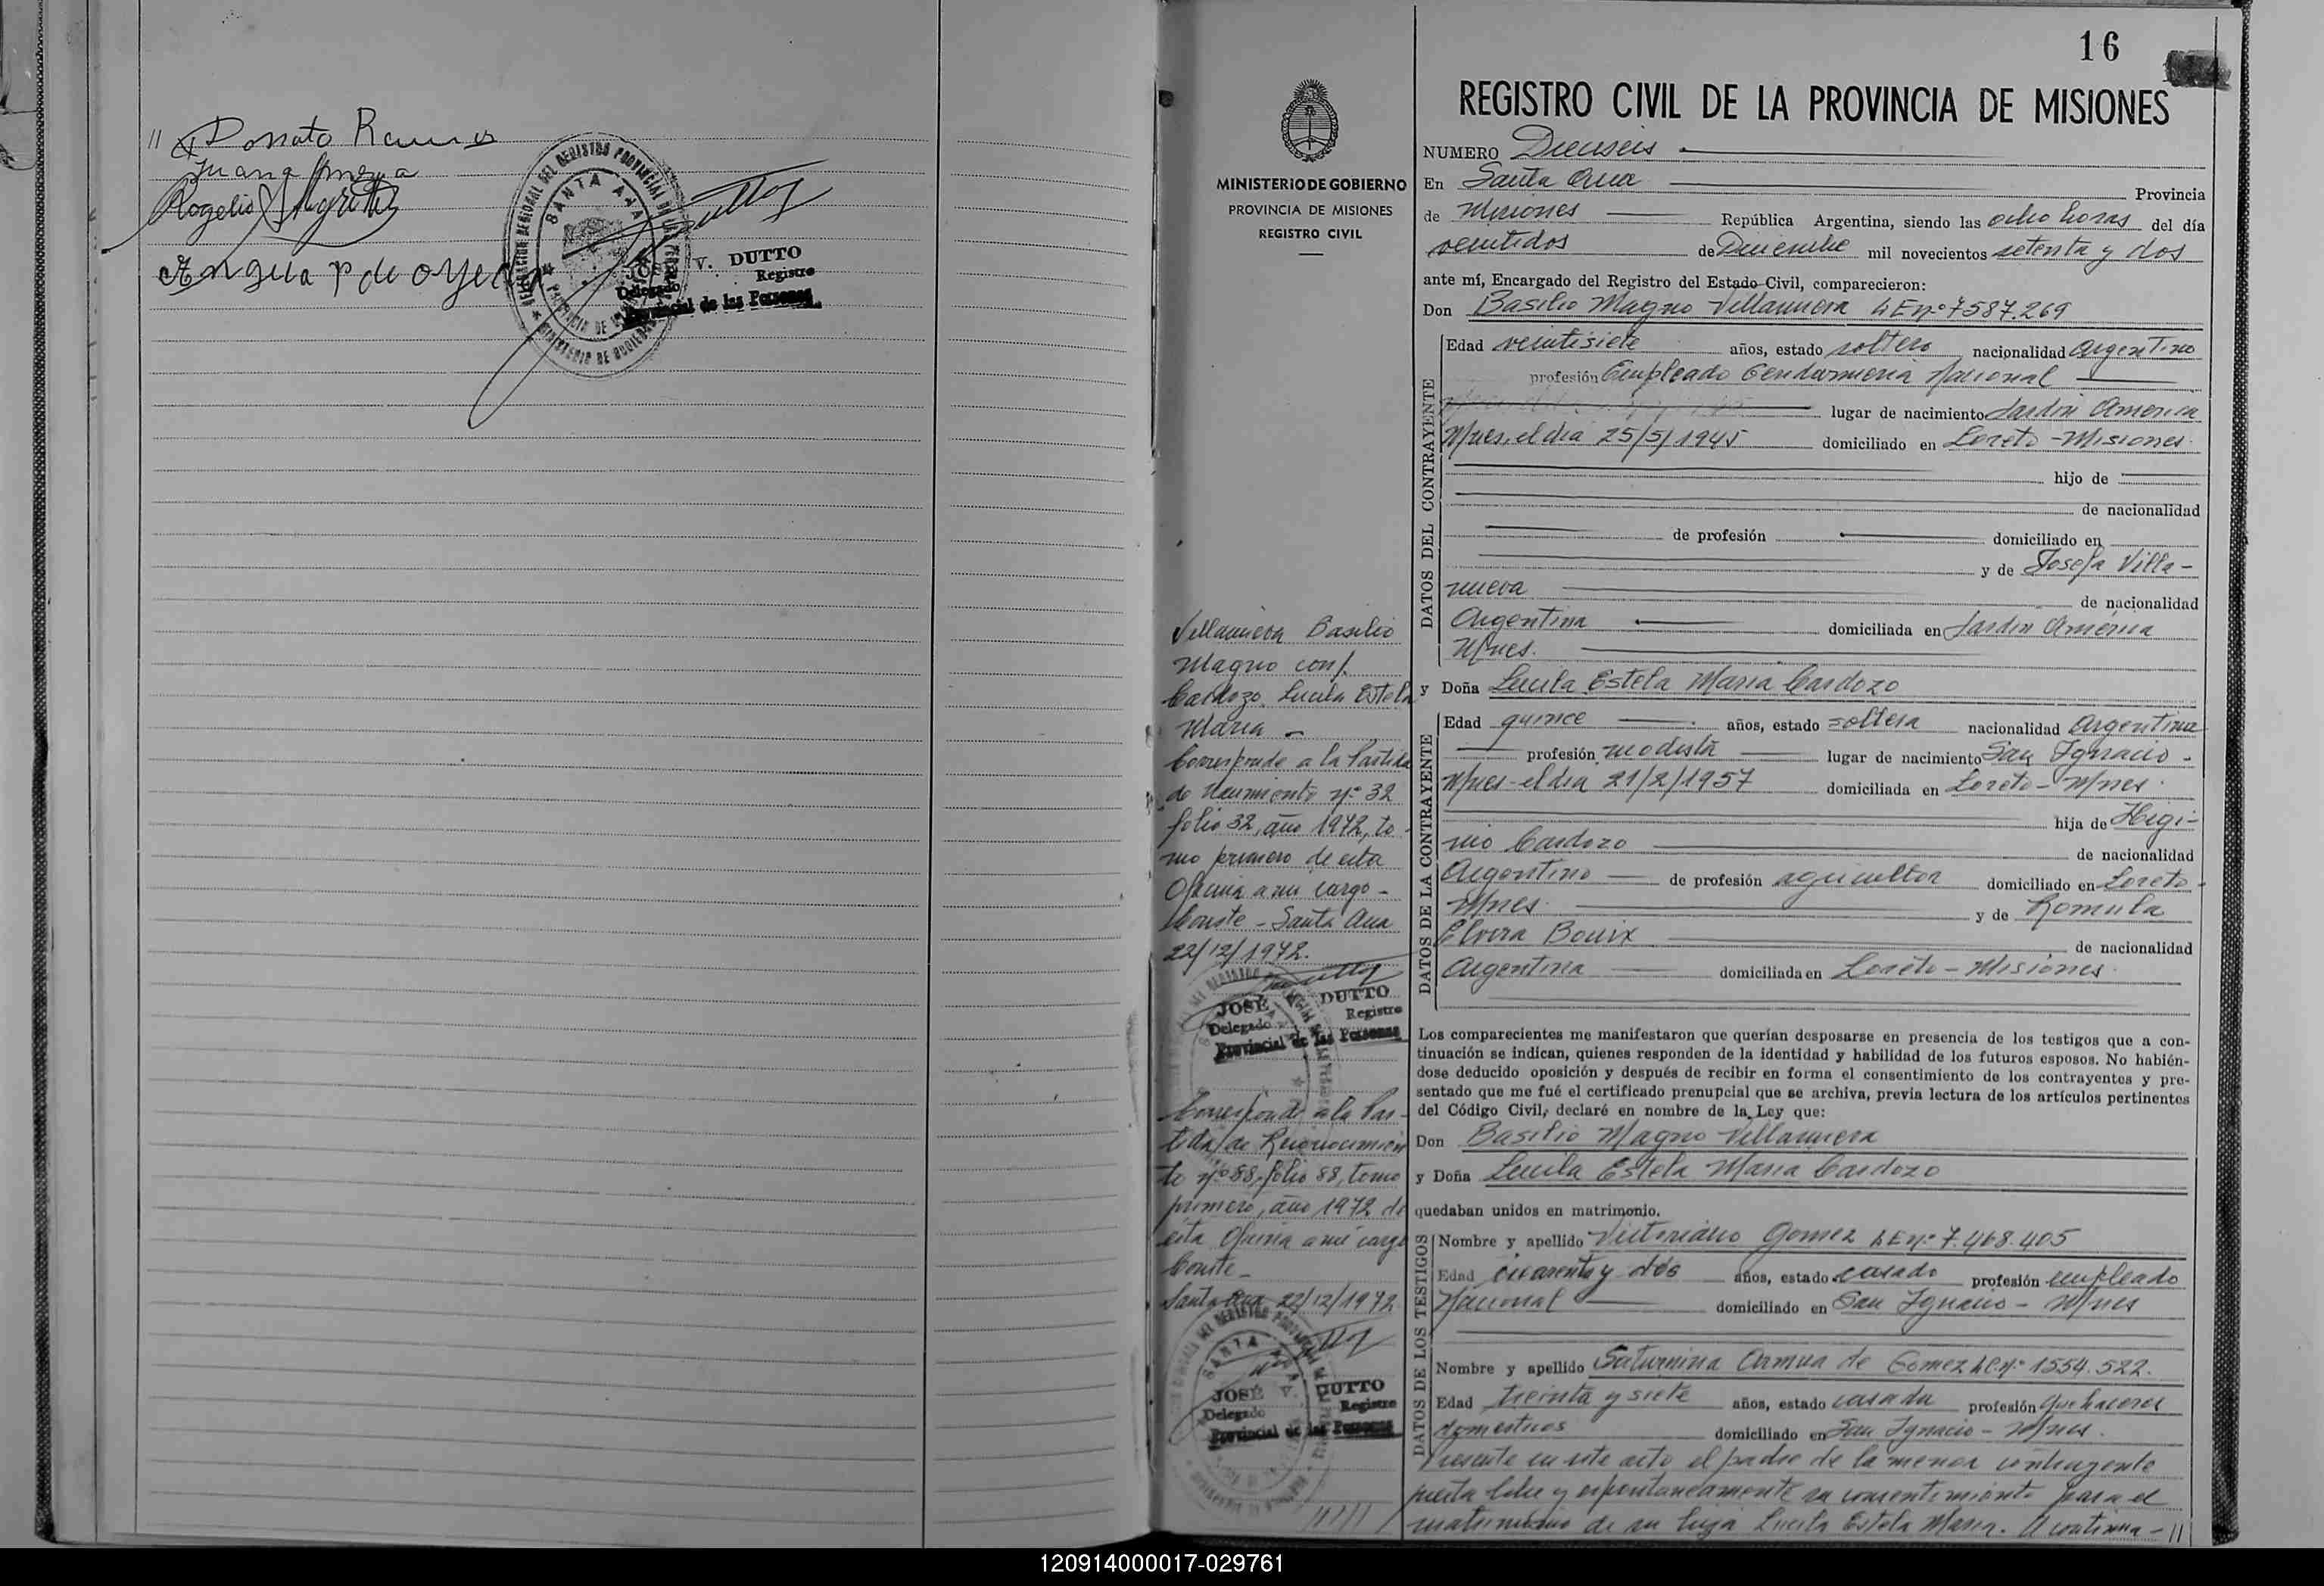 // Donato Ramirez
Juana
Rogelio
de oyeda
DELEGACION REGIONAL DEL REGISTRO PROVINCIAL DE LAS PERSONAS
SANTA ANA
PROVINCIA DE
MINISTERIO DE GOBIERNO
JOSÉ V. DUTTO
Delegado Registro
Provincial de las Personas
MINISTERIO DE GOBIERNO
PROVINCIA DE MISIONES
REGISTRO CIVIL
Villanueva Basilio
Magno con/.
Cardozo Lucila Estela
Maria -
Corresponde a la Partida
de Nacimiento nº 32
folio 32, año 1972, to-
mo primero de esta
Oficina a mi cargo -
Conste - Santa Ana
22/12/1972.
JOSÉ V. DUTTO
Delegado Registro
Provincial de las Personas
Corresponde a la Par-
tida de Reconocimien
to nº 88, folio 88, tomo
primero, año 1972 de
esta Oficina a mi cargo
Conste -
Santa Ana 22/12/1972
SANTA ANA
JOSÉ V. DUTTO
Delegado Registro
Provincial de las Personas
16
REGISTRO CIVIL DE LA PROVINCIA DE MISIONES
NUMERO Dieciseis
En Santa Ana Provincia
de Misiones República Argentina, siendo las ocho horas del día
veintidos de Diciembre mil novecientos setenta y dos
ante mí, Encargado del Registro del Estado Civil, comparecieron:
Don Basilio Magno Villanueva L E nº 7587.269
DATOS DEL CONTRAYENTE
Edad veintisiete años, estado soltero nacionalidad Argentino
profesión Empleado Gendarmeria Nacional
lugar de nacimiento Jardin America
M/nes, el dia 25/5/1945 domiciliado en Loreto - Misiones
hijo de
de nacionalidad
de profesión domiciliado en
y de Josefa Villa-
nueva de nacionalidad
Argentina domiciliada en Jardin América
M/nes.
y Doña Lucila Estela Maria Cardozo
DATOS DE LA CONTRAYENTE
Edad quince años, estado soltera nacionalidad Argentina
profesión modista lugar de nacimiento San Ignacio -
M/nes - el dia 21/2/1957 domiciliada en Loreto - M/nes.
hija de Higi-
nio Cardozo de nacionalidad
Argentino de profesión agricultor domiciliado en Loreto -
M/nes. y de Romula
Elvira Bouix de nacionalidad
Argentina domiciliada en Loreto - Misiones.
Los comparecientes me manifestaron que querían desposarse en presencia de los testigos que a con-
tinuación se indican, quienes responden de la identidad y habilidad de los futuros esposos. No habién-
dose deducido oposición y después de recibir en forma el consentimiento de los contrayentes y pre-
sentado que me fué el certificado prenupcial que se archiva, previa lectura de los artículos pertinentes
del Código Civil, declaré en nombre de la Ley que:
Don Basilio Magno Villanueva
y Doña Lucila Estela Maria Cardozo
quedaban unidos en matrimonio.
DATOS DE LOS TESTIGOS
Nombre y apellido Victoriano Gomez L E nº 7.468.405
Edad cuarenta y dos años, estado casado profesión empleado
Nacional domiciliado en San Ignacio - M/nes
Nombre y apellido Saturnina Armua de Gomez L C nº 1554.522.
Edad treinta y siete años, estado casada profesión Quehaceres
domesticos domiciliado en San Ignacio - M/nes.
Presente en este acto el padre de la menor contrayente
presta libre y espontaneamente su consentimiento para el
matrimonio de su hija Lucila Estela Maria. A continua- //
120914000017-029761